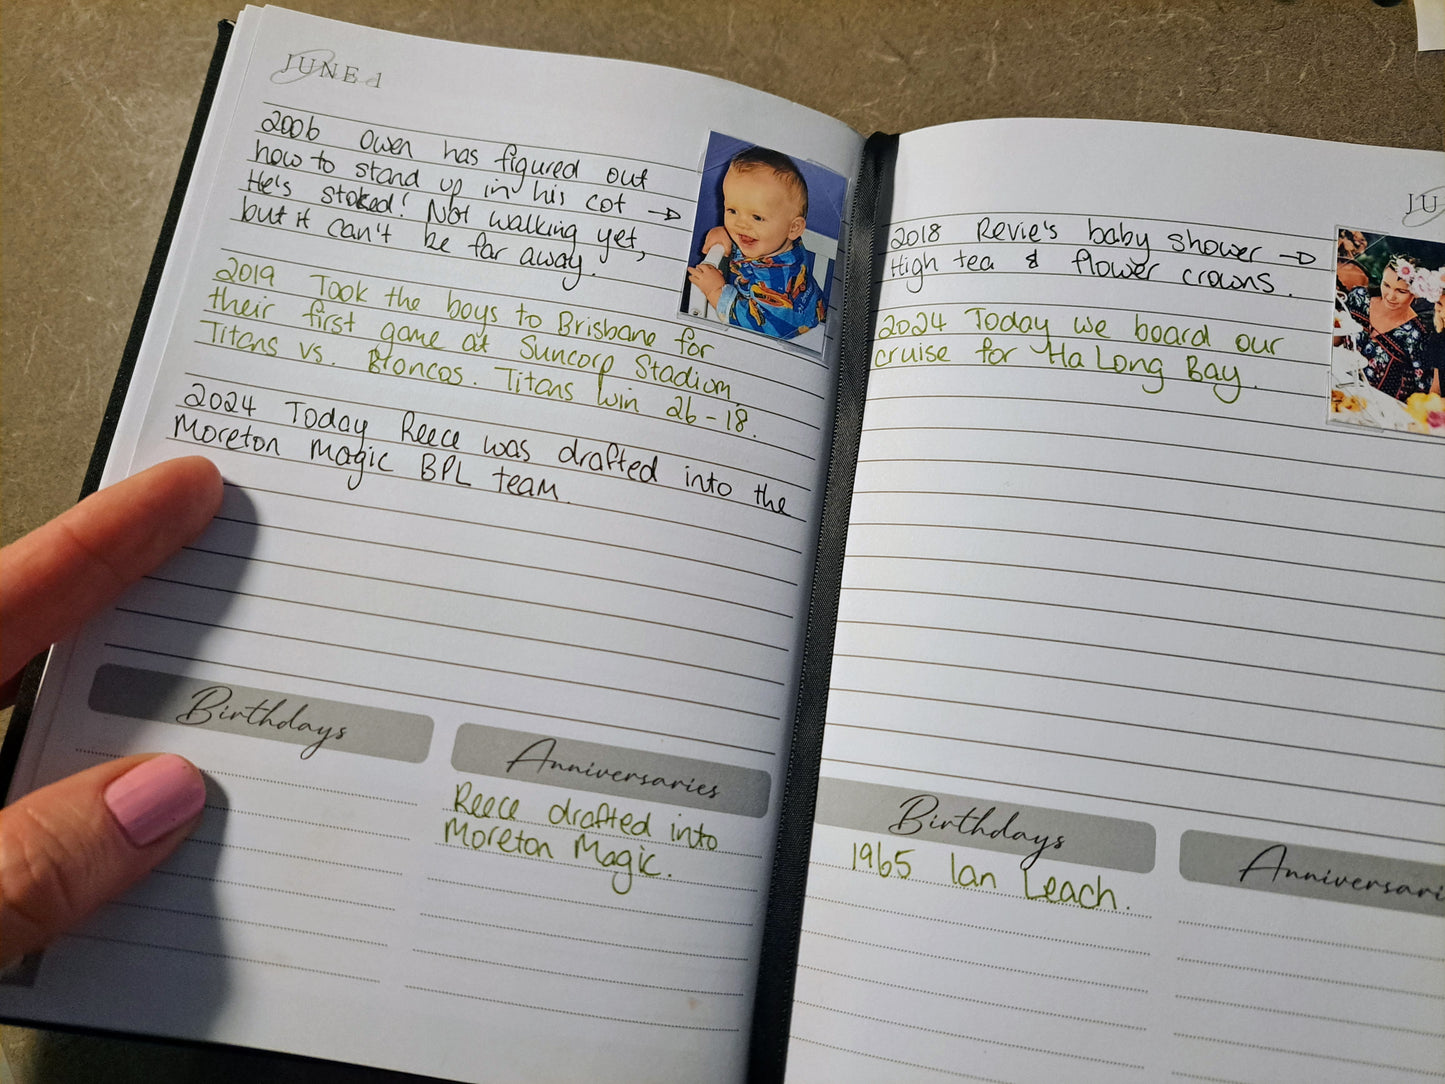 JUNE 1
2006 Owen has figured out
how to stand up in his cot →
He's stoked! Not walking yet,
but it can't be far away.
2019 Took the boys to Brisbane for
their first game at Suncorp Stadium,
Titans vs. Broncos. Titans win 26-18.
2024 Today Reece was drafted into the
Moreton Magic BPL team.
Birthdays
Anniversaries
Reece drafted into
Moreton Magic.
JU
2018 Revie's baby shower →
High tea & flower crowns.
2024 Today we board our
cruise for Ha Long Bay.
Birthdays
1965 Ian Leach.
Anniversari